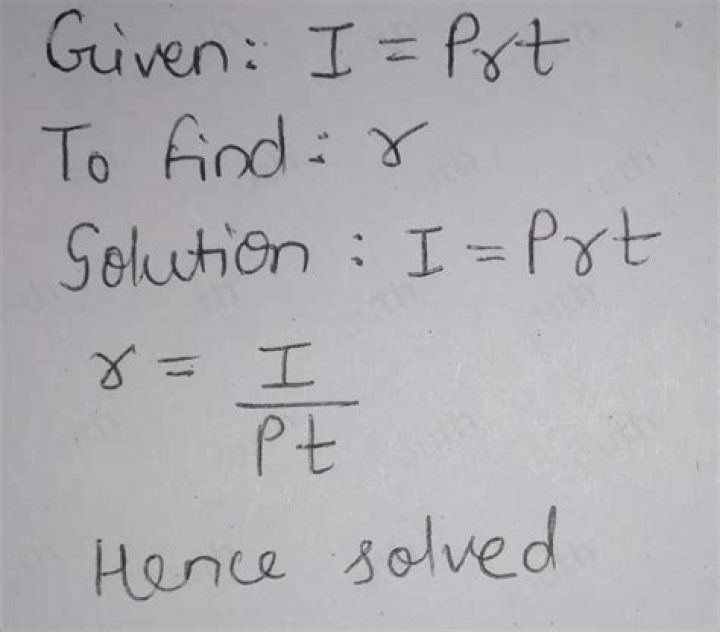 Given: I = Prt
To find: r
Solution: I = Prt
r = I
Pt
Hence solved